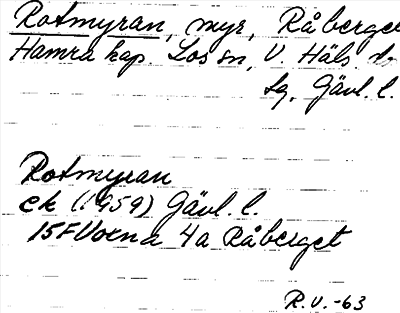 Rotmyran, myr, Råberget
Hamra kap. Los sn, V. Häls. do
sg, Gävl. l.
Rotmyran
ek (1959) Gävl. l.
15F Voxna 4a Råberget
R.V.-63